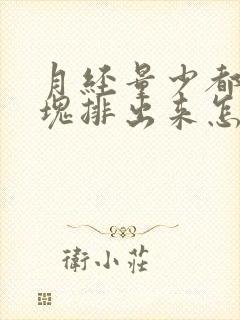 月经量少都
塊排出来怎
衛小莊